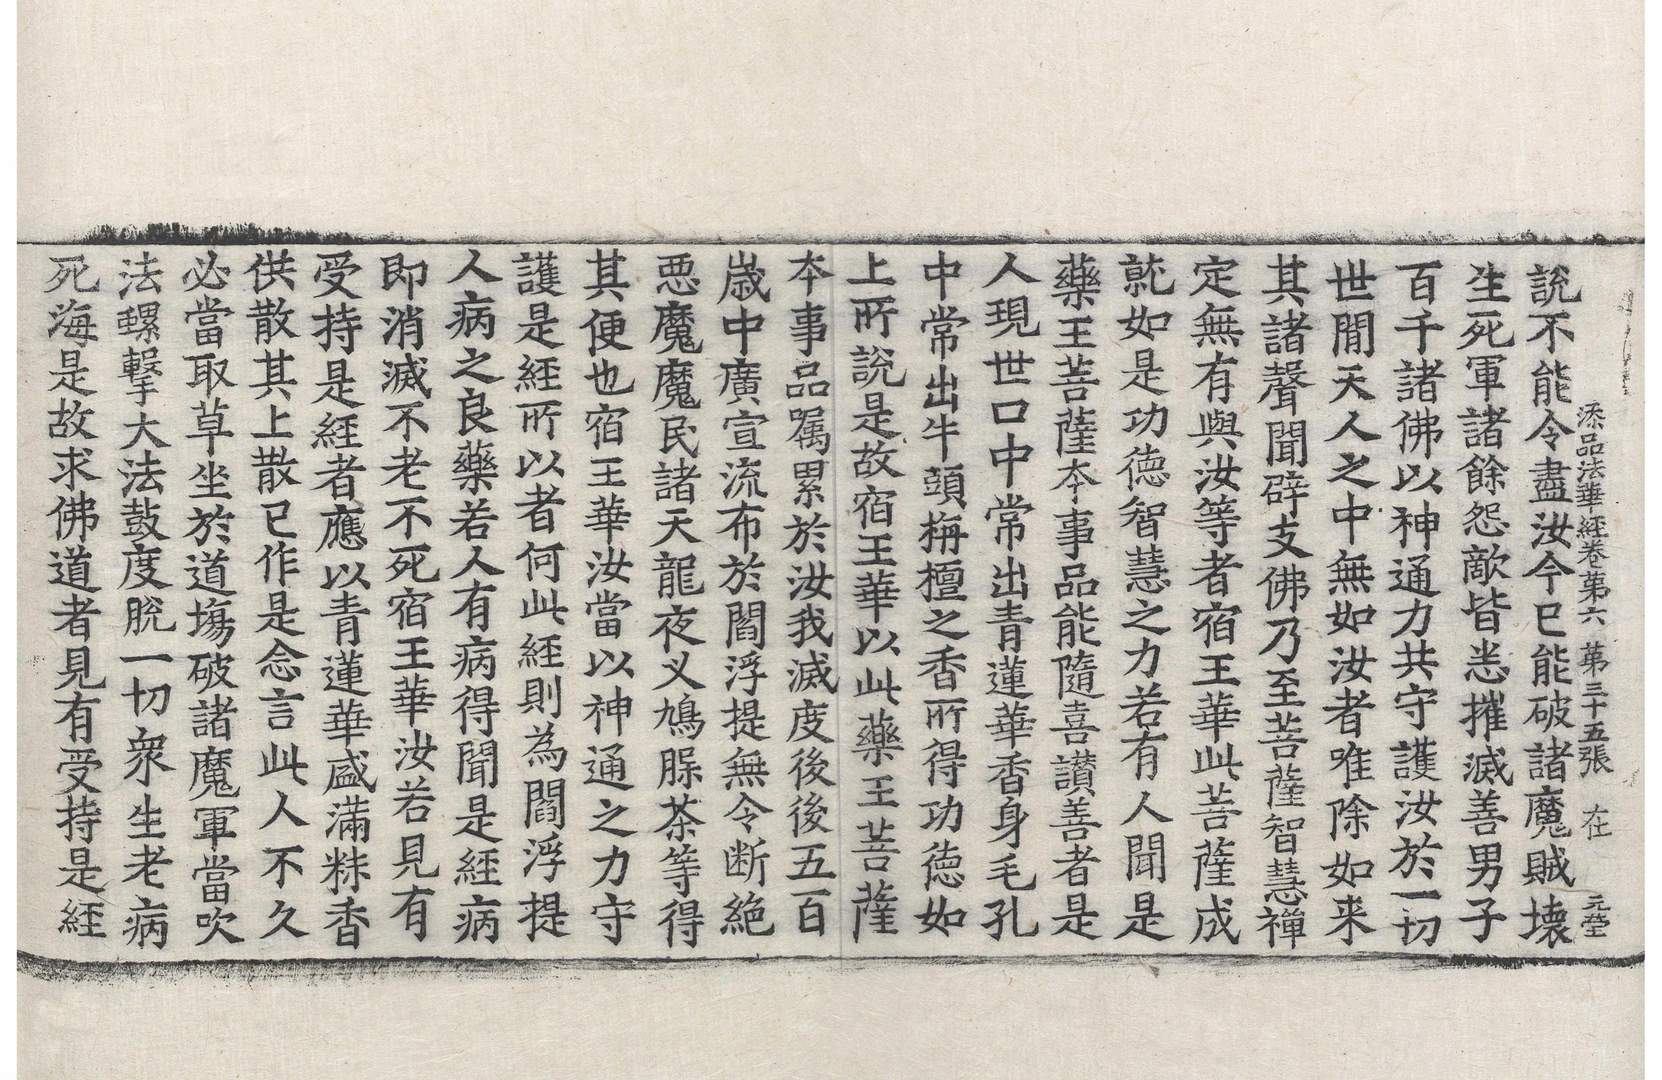 添品法華経卷第六 第三十五張 在 元瑩
說不能令盡汝今已能破諸魔賊壞
生死軍諸餘怨敵皆悉摧滅善男子
百千諸佛以神通力共守護汝於一切
世間天人之中無如汝者唯除如来
其諸聲聞辟支佛乃至菩薩智慧禪
定無有與汝等者宿王華此菩薩成
就如是功德智慧之力若有人聞是
藥王菩薩本事品能隨喜讃善者是
人現世口中常出青蓮華香身毛孔
中常出牛頭栴檀之香所得功德如
上所說是故宿王華以此藥王菩薩
本事品囑累於汝我滅度後後五百
歳中廣宣流布於閻浮提無令断絶
悪魔魔民諸天龍夜叉鳩脲茶等得
其便也宿王華汝當以神通之力守
護是經所以者何此經則為閻浮提
人病之良藥若人有病得聞是經病
即消滅不老不死宿王華汝若見有
受持是經者應以青蓮華盛滿粖香
供散其上散已作是念言此人不久
必當取草坐於道塲破諸魔軍當吹
法螺擊大法鼓度脫一切衆生老病
死海是故求佛道者見有受持是經